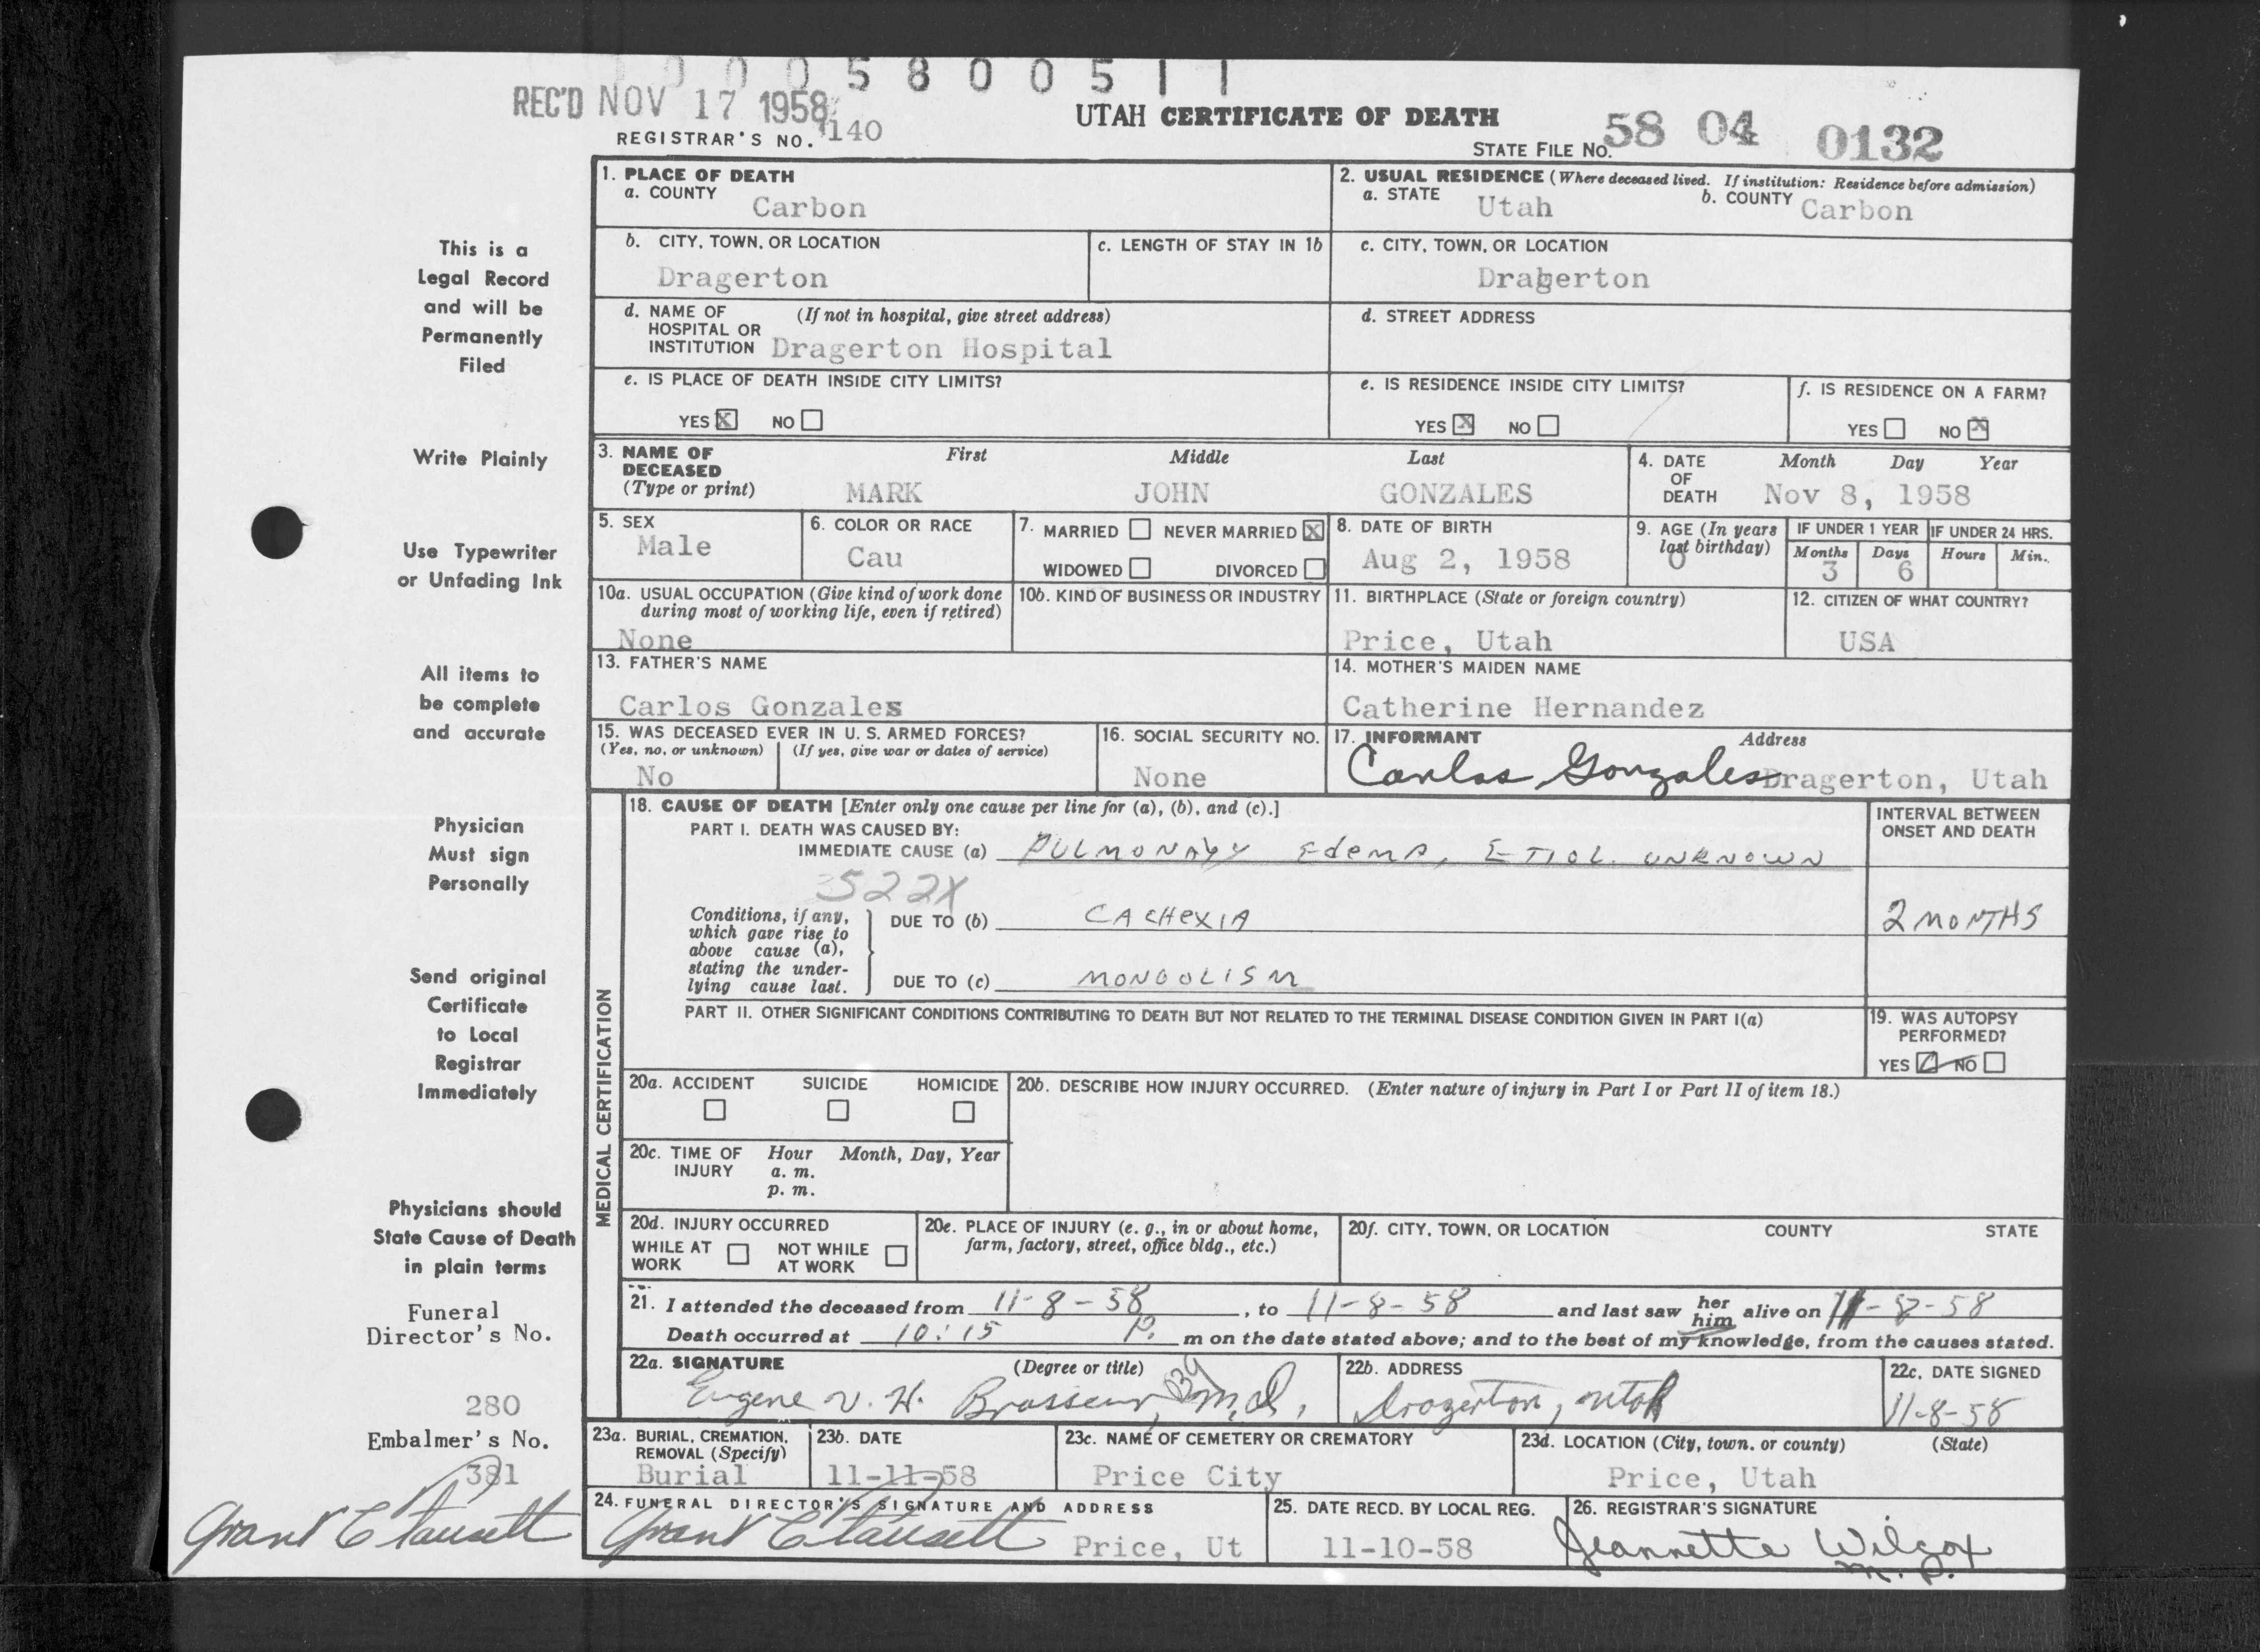 0 0 0 5 8 0 0 5 1 1
REC'D NOV 17 1958
UTAH CERTIFICATE OF DEATH
REGISTRAR'S NO. 140
STATE FILE NO. 58 04 0132
This is a
Legal Record
and will be
Permanently
Filed
Write Plainly
Use Typewriter
or Unfading Ink
All items to
be complete
and accurate
Physician
Must sign
Personally
Send original
Certificate
to Local
Registrar
Immediately
Physicians should
State Cause of Death
in plain terms
Funeral
Director's No.
280
Embalmer's No.
381
1. PLACE OF DEATH
a. COUNTY Carbon
2. USUAL RESIDENCE (Where deceased lived. If institution: Residence before admission)
a. STATE Utah b. COUNTY Carbon
b. CITY, TOWN, OR LOCATION
Dragerton
c. LENGTH OF STAY IN 1b
c. CITY, TOWN, OR LOCATION
Dragerton
d. NAME OF (If not in hospital, give street address)
HOSPITAL OR
INSTITUTION Dragerton Hospital
d. STREET ADDRESS
e. IS PLACE OF DEATH INSIDE CITY LIMITS?
YES X NO
e. IS RESIDENCE INSIDE CITY LIMITS?
YES X NO
f. IS RESIDENCE ON A FARM?
YES NO X
3. NAME OF DECEASED (Type or print)
First Middle Last
MARK JOHN GONZALES
4. DATE OF DEATH
Month Day Year
Nov 8, 1958
5. SEX
Male
6. COLOR OR RACE
Cau
7. MARRIED NEVER MARRIED X
WIDOWED DIVORCED
8. DATE OF BIRTH
Aug 2, 1958
9. AGE (In years
last birthday)
0
IF UNDER 1 YEAR
Months Days
3 6
IF UNDER 24 HRS.
Hours Min.
10a. USUAL OCCUPATION (Give kind of work done
during most of working life, even if retired)
None
10b. KIND OF BUSINESS OR INDUSTRY
11. BIRTHPLACE (State or foreign country)
Price, Utah
12. CITIZEN OF WHAT COUNTRY?
USA
13. FATHER'S NAME
Carlos Gonzales
14. MOTHER'S MAIDEN NAME
Catherine Hernandez
15. WAS DECEASED EVER IN U. S. ARMED FORCES?
(Yes, no, or unknown) (If yes, give war or dates of service)
No
16. SOCIAL SECURITY NO.
None
17. INFORMANT Address
Carlos Gonzales Dragerton, Utah
MEDICAL CERTIFICATION
18. CAUSE OF DEATH [Enter only one cause per line for (a), (b), and (c).]
INTERVAL BETWEEN
ONSET AND DEATH
PART I. DEATH WAS CAUSED BY:
IMMEDIATE CAUSE (a) PULMONARY EDEMA, ETIOL. UNKNOWN
522X
Conditions, if any,
which gave rise to
above cause (a),
stating the under-
lying cause last.
DUE TO (b) CACHEXIA 2 MONTHS
DUE TO (c) MONGOLISM
PART II. OTHER SIGNIFICANT CONDITIONS CONTRIBUTING TO DEATH BUT NOT RELATED TO THE TERMINAL DISEASE CONDITION GIVEN IN PART I(a)
19. WAS AUTOPSY
PERFORMED?
YES NO
20a. ACCIDENT SUICIDE HOMICIDE
20b. DESCRIBE HOW INJURY OCCURRED. (Enter nature of injury in Part I or Part II of item 18.)
20c. TIME OF INJURY
Hour Month, Day, Year
a. m.
p. m.
20d. INJURY OCCURRED
WHILE AT WORK NOT WHILE AT WORK
20e. PLACE OF INJURY (e. g., in or about home,
farm, factory, street, office bldg., etc.)
20f. CITY, TOWN, OR LOCATION COUNTY STATE
21. I attended the deceased from 11-8-58, to 11-8-58 and last saw her him alive on 11-8-58
Death occurred at 10:15 P. m on the date stated above; and to the best of my knowledge, from the causes stated.
22a. SIGNATURE (Degree or title)
Eugene V. H. Brasseur, M.D.
22b. ADDRESS
Dragerton, Utah
22c. DATE SIGNED
11-8-58
23a. BURIAL, CREMATION,
REMOVAL (Specify)
Burial
23b. DATE
11-11-58
23c. NAME OF CEMETERY OR CREMATORY
Price City
23d. LOCATION (City, town, or county) (State)
Price, Utah
24. FUNERAL DIRECTOR'S SIGNATURE AND ADDRESS
Price, Ut
25. DATE RECD. BY LOCAL REG.
11-10-58
26. REGISTRAR'S SIGNATURE
Jeannette Wilcox